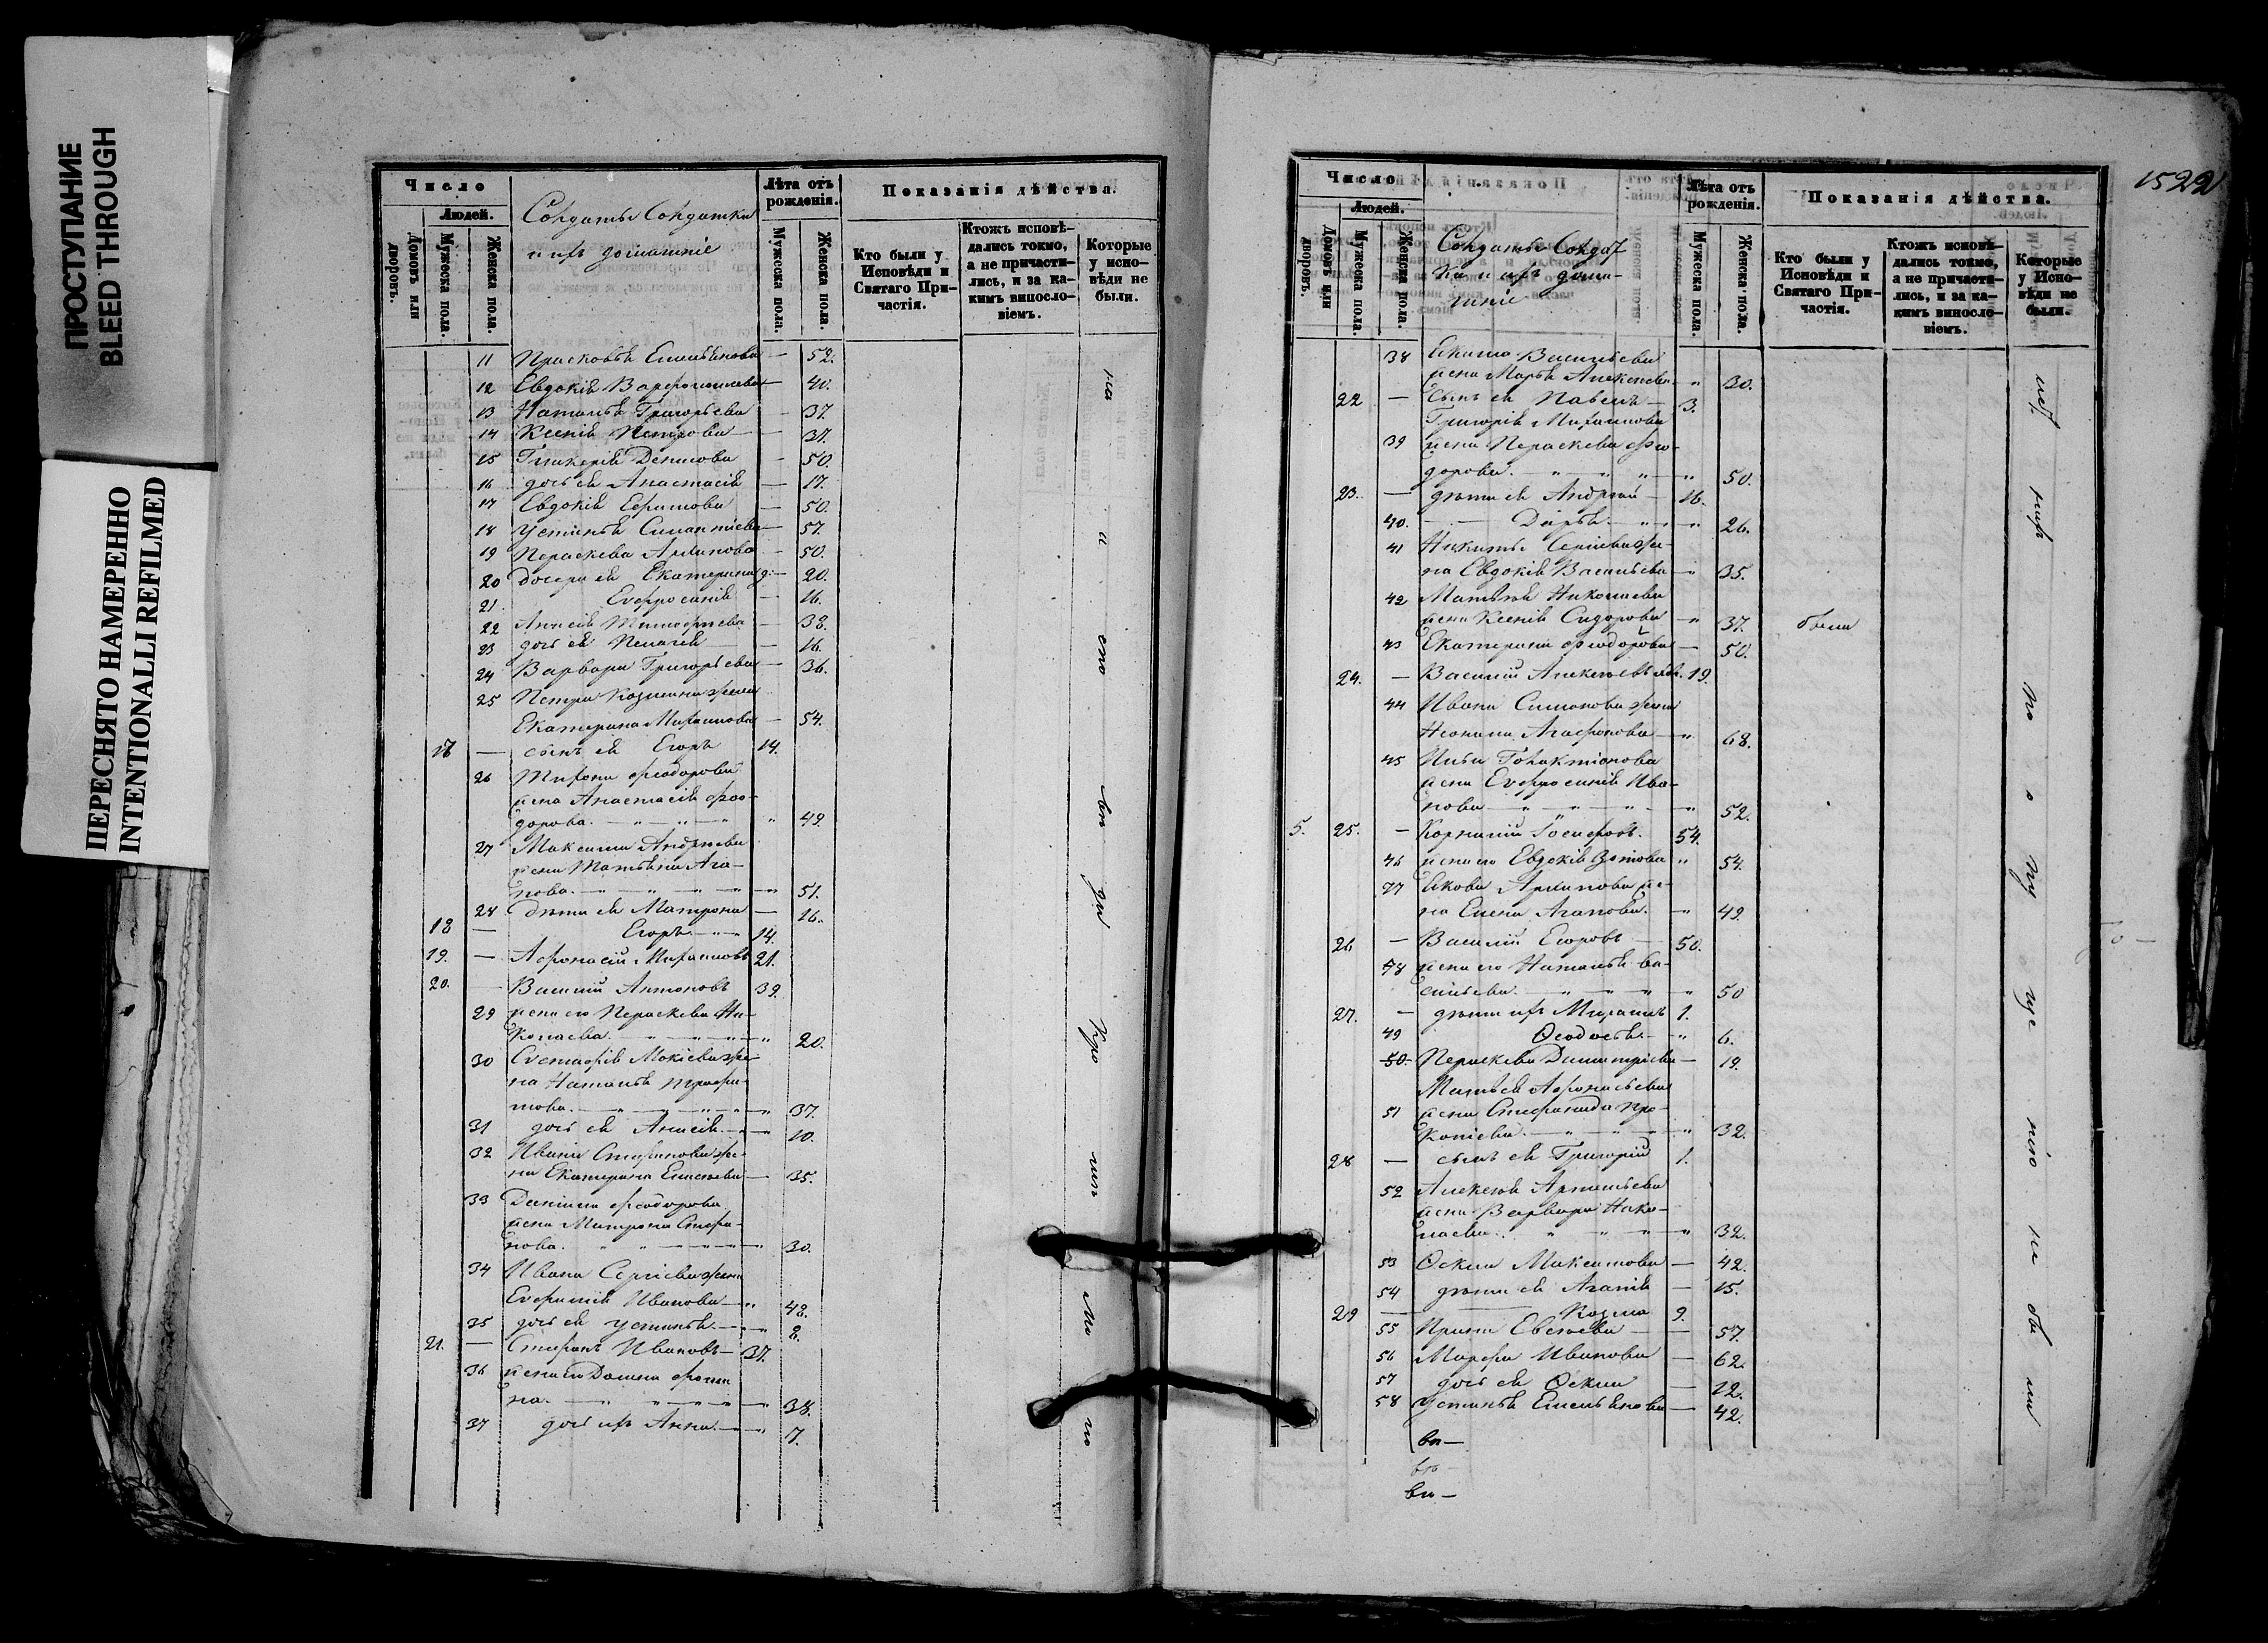 ПРОСТУПАНИЕ
BLEED THROUGH
ПЕРЕСНЯТО НАМЕРЕННО
INTENTIONALLI REFILMED
Число
Людей.
Домовъ или дворовъ.
Мужеска пола.
Женска пола.
Солдаты Солдатки
и ихъ домашніе
Лѣта отъ рожденія.
Мужеска пола.
Женска пола.
Показанія дѣйства.
Кто были у Исповѣди и Святаго Причастія.
Ктожъ исповѣдались токмо, а не причастились, и за какимъ винословіемъ.
Которые у исповѣди не были.
11 Прасковья Емельянова — 52.
12 Евдокія Варфоломеева — 40.
13 Наталья Григорьева — 37.
14 Ксенія Петрова — 37.
15 Гликерія Денисова — 50.
16 дочь ея Анастасія — 17.
17 Евдокія Ефимова — 50.
18 Устинья Силантіева — 57.
19 Параскева Архипова — 50.
20 дочери ея Екатерина — 20.
21. Евфросинія — 16.
22 Анисія Тимофеева — 38.
23 дочь ея Пелагія — 16.
24 Варвара Григорьева — 36.
25 Петра Козмина жена
Екатерина Мираинова — 54.
17 — сынъ ея Егоръ 14.
26 Тихона Феодорова
жена Анастасія Фео-
дорова. 49.
27 Максима Андреева
жена Татьяна Ага-
пова. 51.
28 дѣти ея Матрона — 16.
18 — Егоръ 14.
19. — Афонасій 21.
20. — Василій Антоновъ 39.
29 жена его Параскева Ни-
колаева. 20.
30 Евстафія Мокіева же-
на Наталья Трофи-
мова. 37.
31 дочь ея Анисія 10.
32 Ивана Стефанова же-
на Екатерина Елисеева — 35.
33 Даніила Феодорова
жена Матрона Стефа-
нова. 30.
34 Ивана Сергіева жена
Евфимія Иванова 48.
35 дочь ея Устинья 8.
21. — Стефанъ Ивановъ — 37.
36 жена его Домна Фоми-
на. 38.
37 дочь ихъ Анна 7.
1522
Число
Людей.
Домовъ или дворовъ.
Мужеска пола.
Женска пола.
Солдаты Солдат
ки и ихъ дома-
шніе
Лѣта отъ рожденія.
Мужеска пола.
Женска пола.
Показанія дѣйства.
Кто были у Исповѣди и Святаго Причастія.
Ктожъ исповѣдались токмо, а не причастились, и за какимъ винословіемъ.
Которые у Исповѣди не были.
38 Екима Васильева
жена Марья Алексеева 30.
22 — Сынъ ея Павелъ — 3.
Григорія
39 жена Параскева Фео-
дорова. 50.
23. — дѣти ея Андрей — 16.
40. Дарья 26.
41 Никиты Сергіева же-
на Евдокія Васильева 35.
42 Матвѣя Николаева
жена Ксенія Сидорова 37. были
43 Екатерина Феодорова — 50.
24. — Василій Алексѣевъ 19.
44 Ивана Симонова жена
Неонила Агафонова 68.
45 Галактіонова
жена Евфросинія Ива-
нова 52.
5. 25. — Корнилій Іосифовъ. 54.
46 жена его Евдокія Зотова 54.
47 Якова Архипова же-
на Елена Агапова. 49.
26 — Василій Егоровъ 50.
48 жена его Наталья Ва-
сильева. 50
27. — дѣти ихъ 1.
49 Феодосья 6.
50. Параскева Димитріева — 19.
Матвея Афонасьева
51 жена Степанида Про-
копіева. 32.
28 — сынъ ея Григорій 1.
52 Алексея Артемьева
жена Варвара Нико-
лаева. 32.
53 Фекла Максимова — 42.
54 дѣти ея Агапія — 15.
29 — Козма 9.
55 Ирина Евсеева — 57.
56 Марфа Иванова — 62.
57 дочь ея Фекла — 22.
58 Устинья Емельянова — 42.